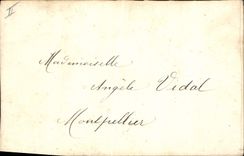 II
Mademoiselle
Angèle Vidal
Montpellier